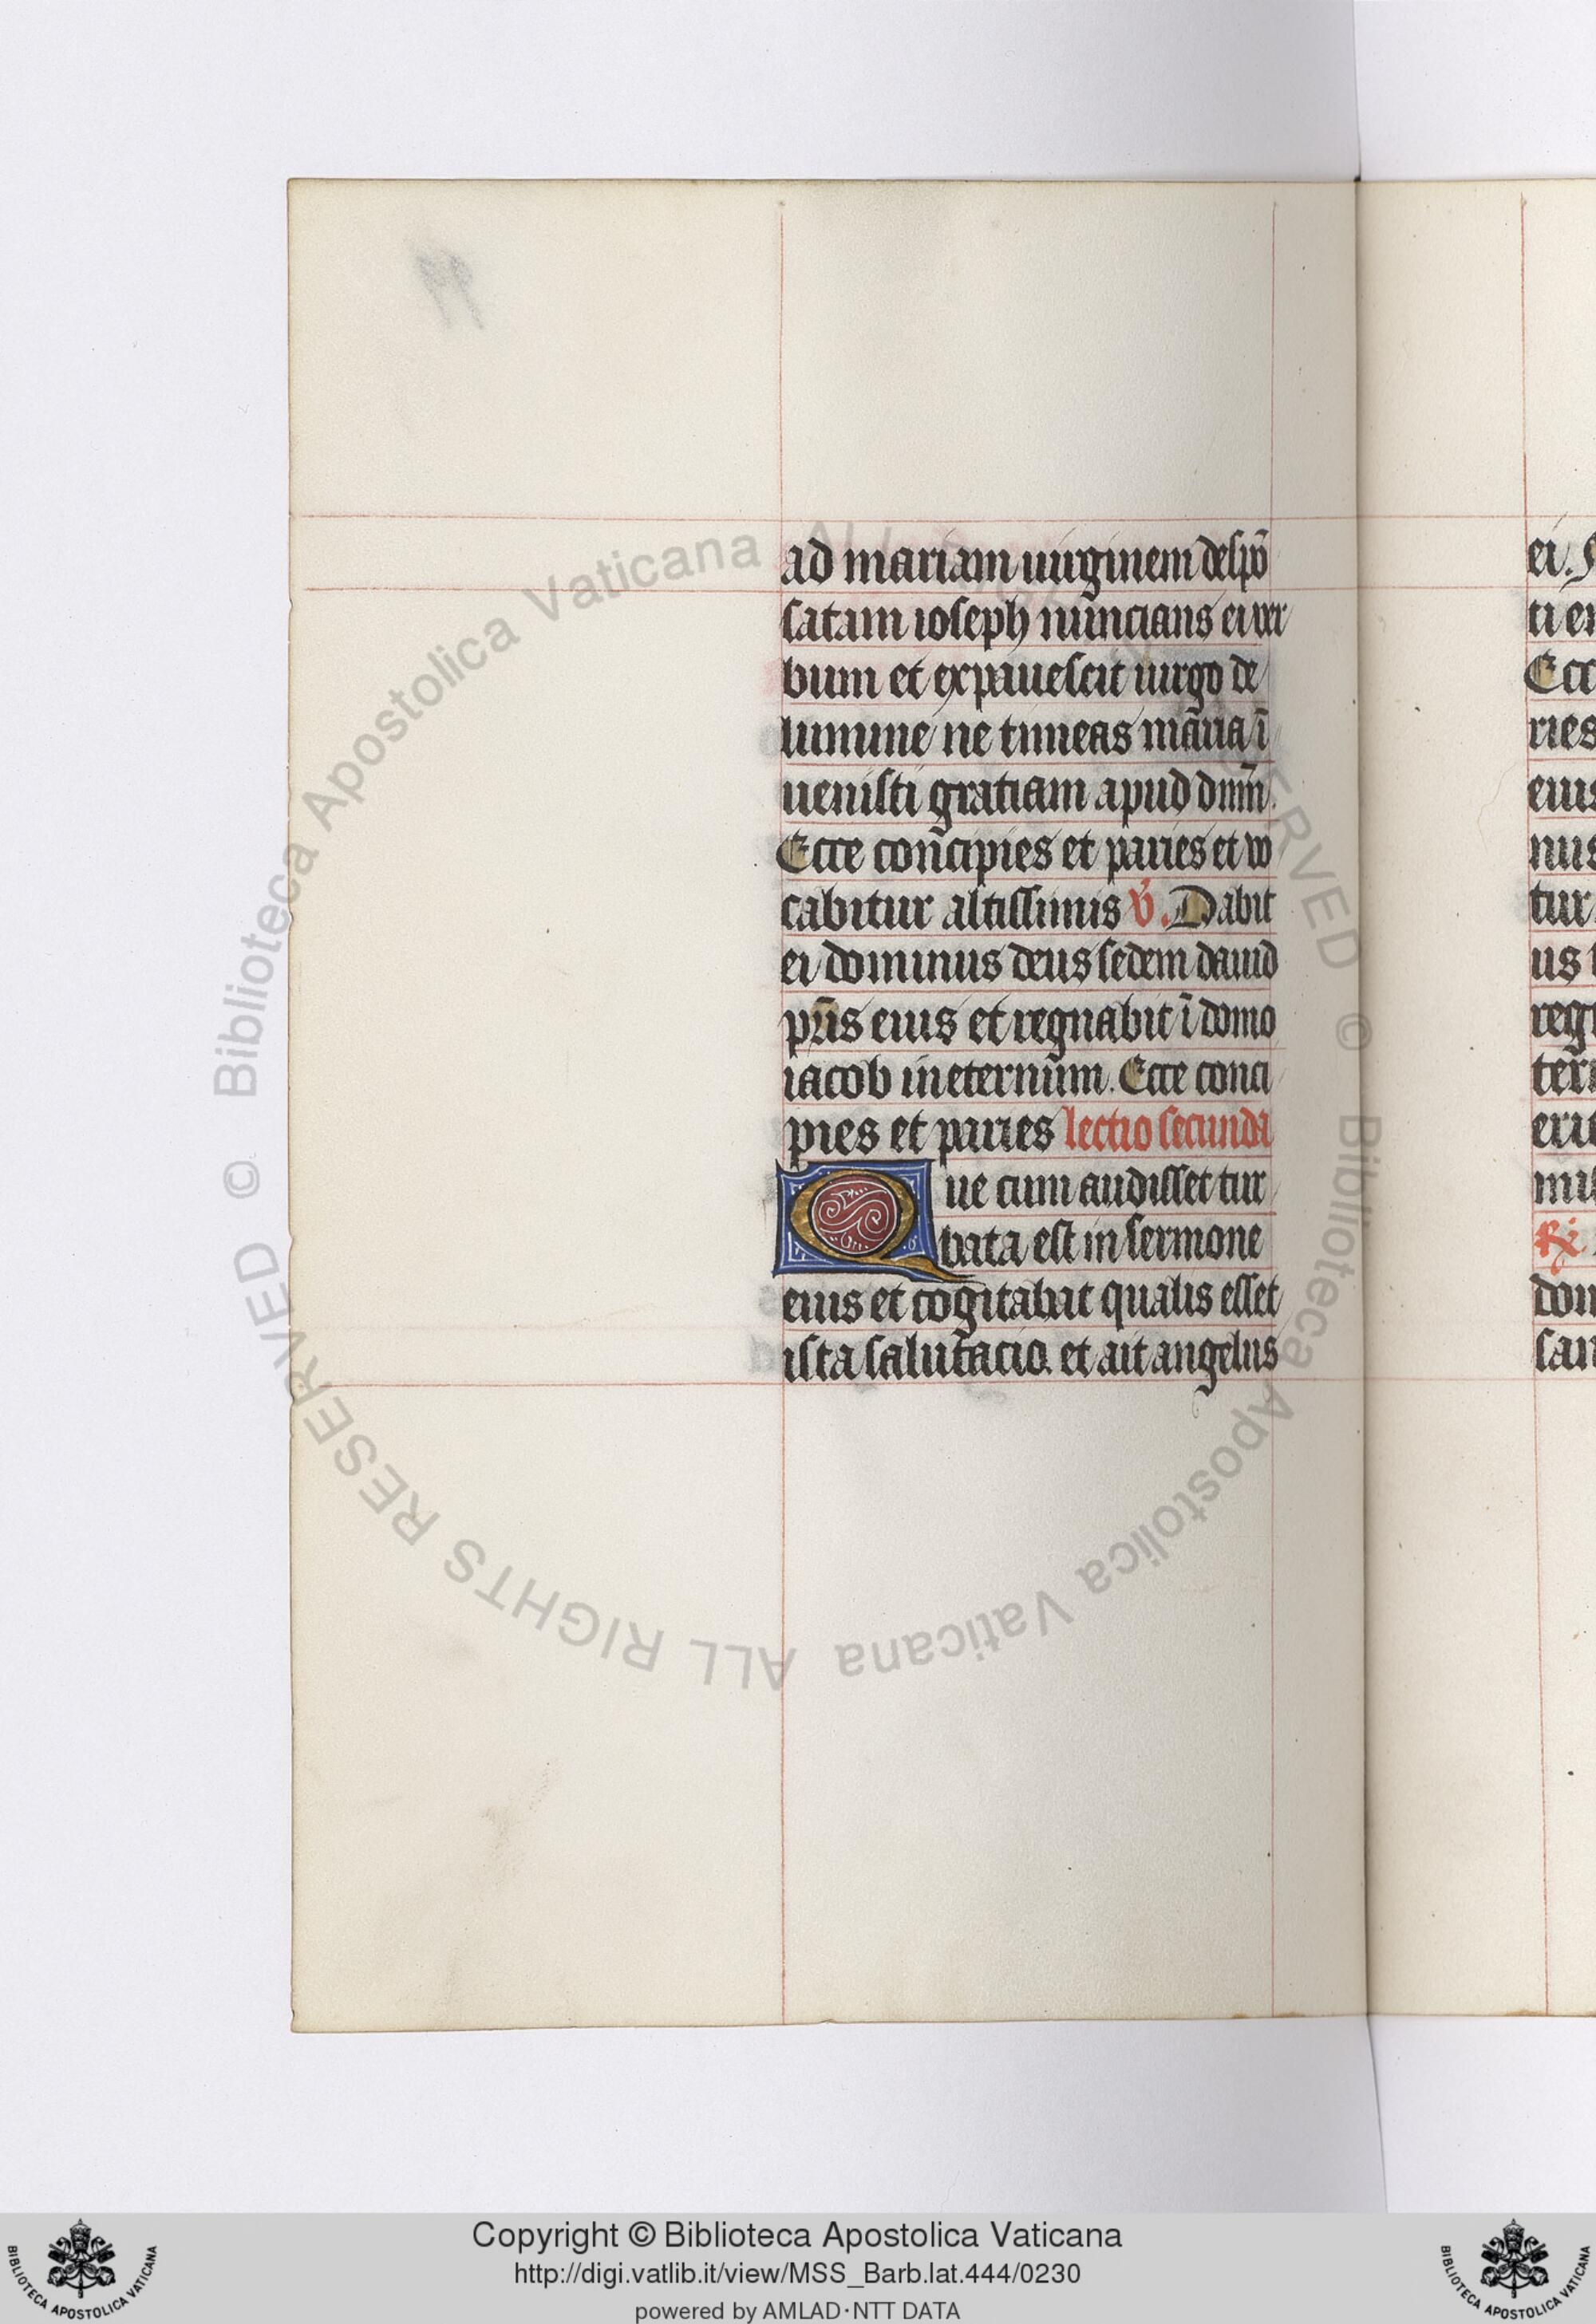 ad mariam uirginem despō
satam ioseph nuncians ei uer
bum et expauescit uirgo de
lumine ne timeas maria ī
uenisti gratiam apud dnm̄.
Ecce concipies et paries et uo
cabitur altissimis v̄. Dabit
ei dominus deus sedem dauid
pr̄is eius et regnabit ī domo
iacob in eternum. Ecce conci
pies et paries lectio secunda
Que cum audisset tur
bata est in sermone
eius et cogitabat qualis esset
ista salutacio. et ait angelus
ei.
ti
Ecce
ries
eius
nus
tur
us
reg
tern
erit
mi
R̄.
dom
san
© Biblioteca Apostolica Vaticana ALL RIGHTS RESERVED © Biblioteca Apostolica Vaticana ALL RIGHTS RESERVED
Copyright © Biblioteca Apostolica Vaticana
http://digi.vatlib.it/view/MSS_Barb.lat.444/0230
powered by AMLAD·NTT DATA
BIBLIOTECA APOSTOLICA VATICANA
BIBLIOTECA APOSTOLICA VATICANA